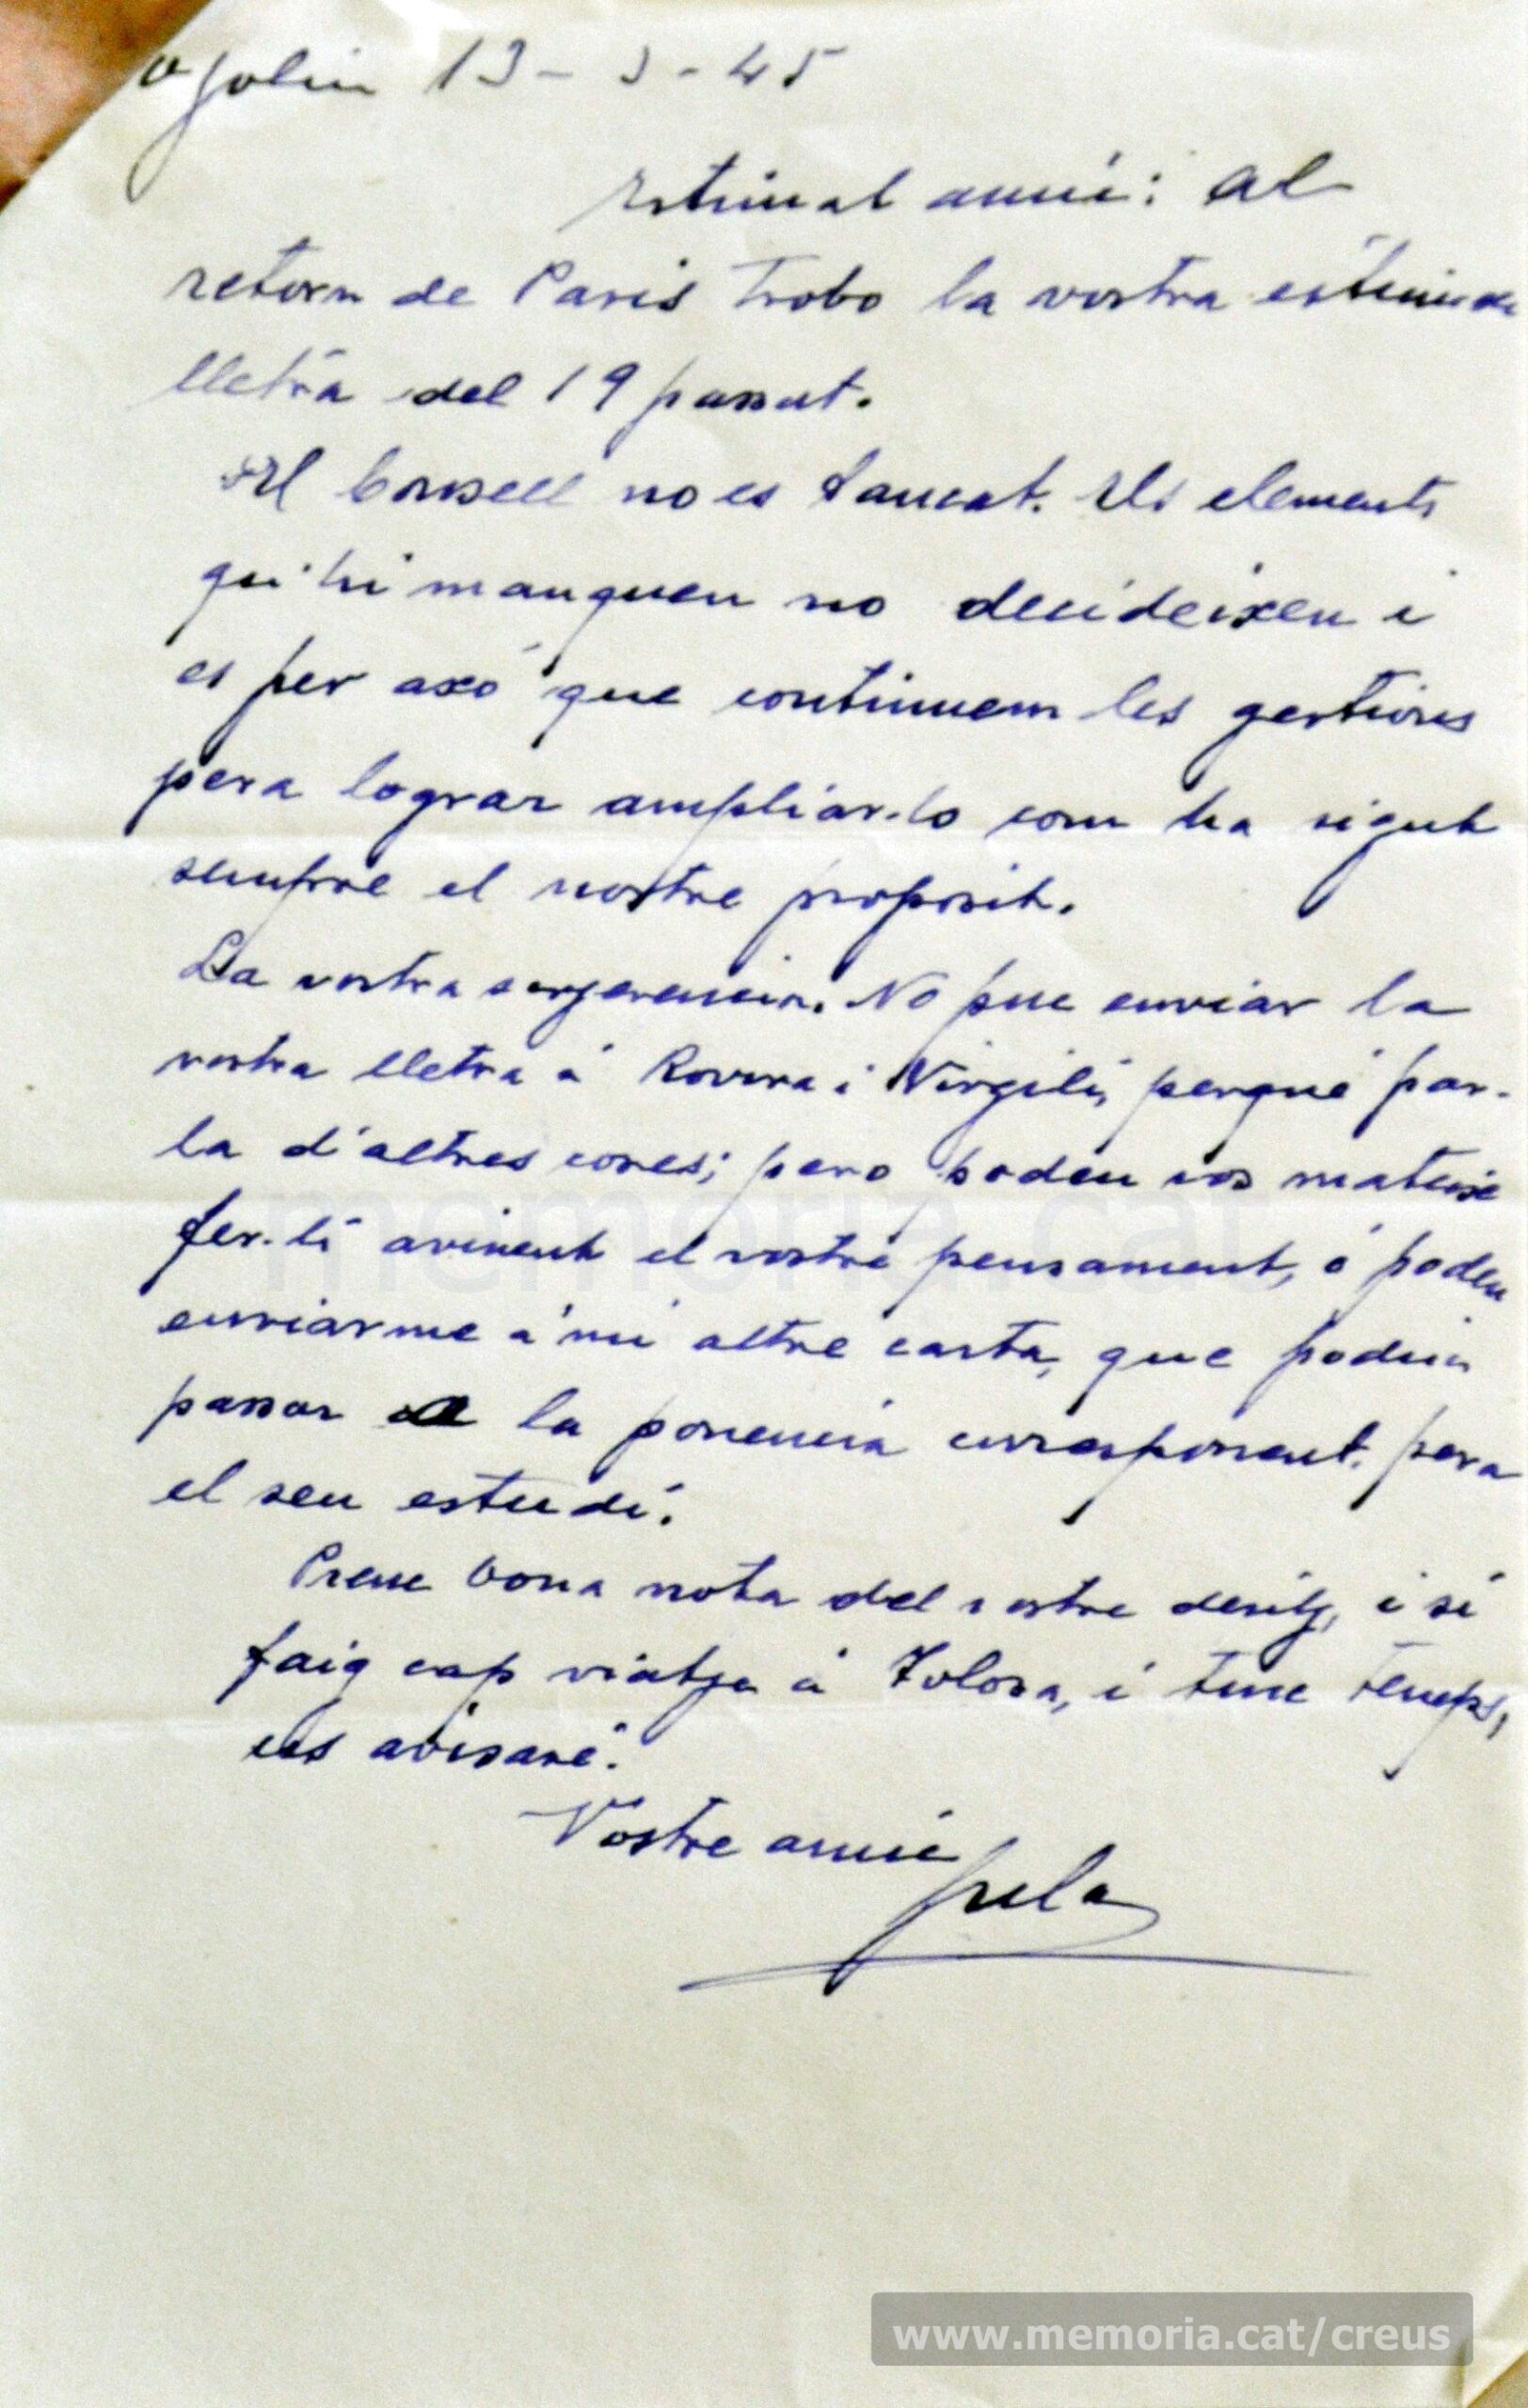 13 - 3 - 45
Estimat amic: al
retorn de Paris trobo la vostra estimada
lletra del 19 passat.
El Consell no es tancat. Els elements
qu'hi manquen no decideixen i
es per axó que continuem les gestions
pera lograr ampliar-lo com ha sigut
sempre el nostre proposit.
La vostra sugerencia. No puc enviar la
vostra lletra á Rovira i Virgili, perqué par-
la d'altres coses; pero podeu vos mateix
fer-li avinent el vostre pensament, ó podeu
enviarme á mi altre carta, que podria
passar a la ponencia corresponent. pera
el seu estudi.
Prenc bona nota del vostre desitj, i si
faig cap viatje á Tolosa, i tinc temps,
us avisaré.
Vostre amic
memoria.cat
www.memoria.cat/creus